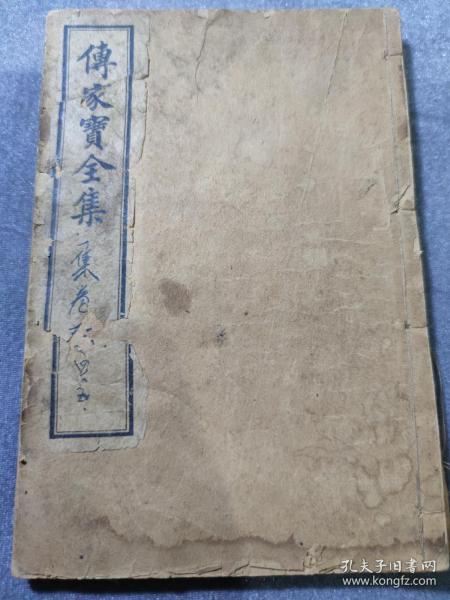 傳家寳全集
集卷
四五
孔夫子旧书网
www.kongfz.com